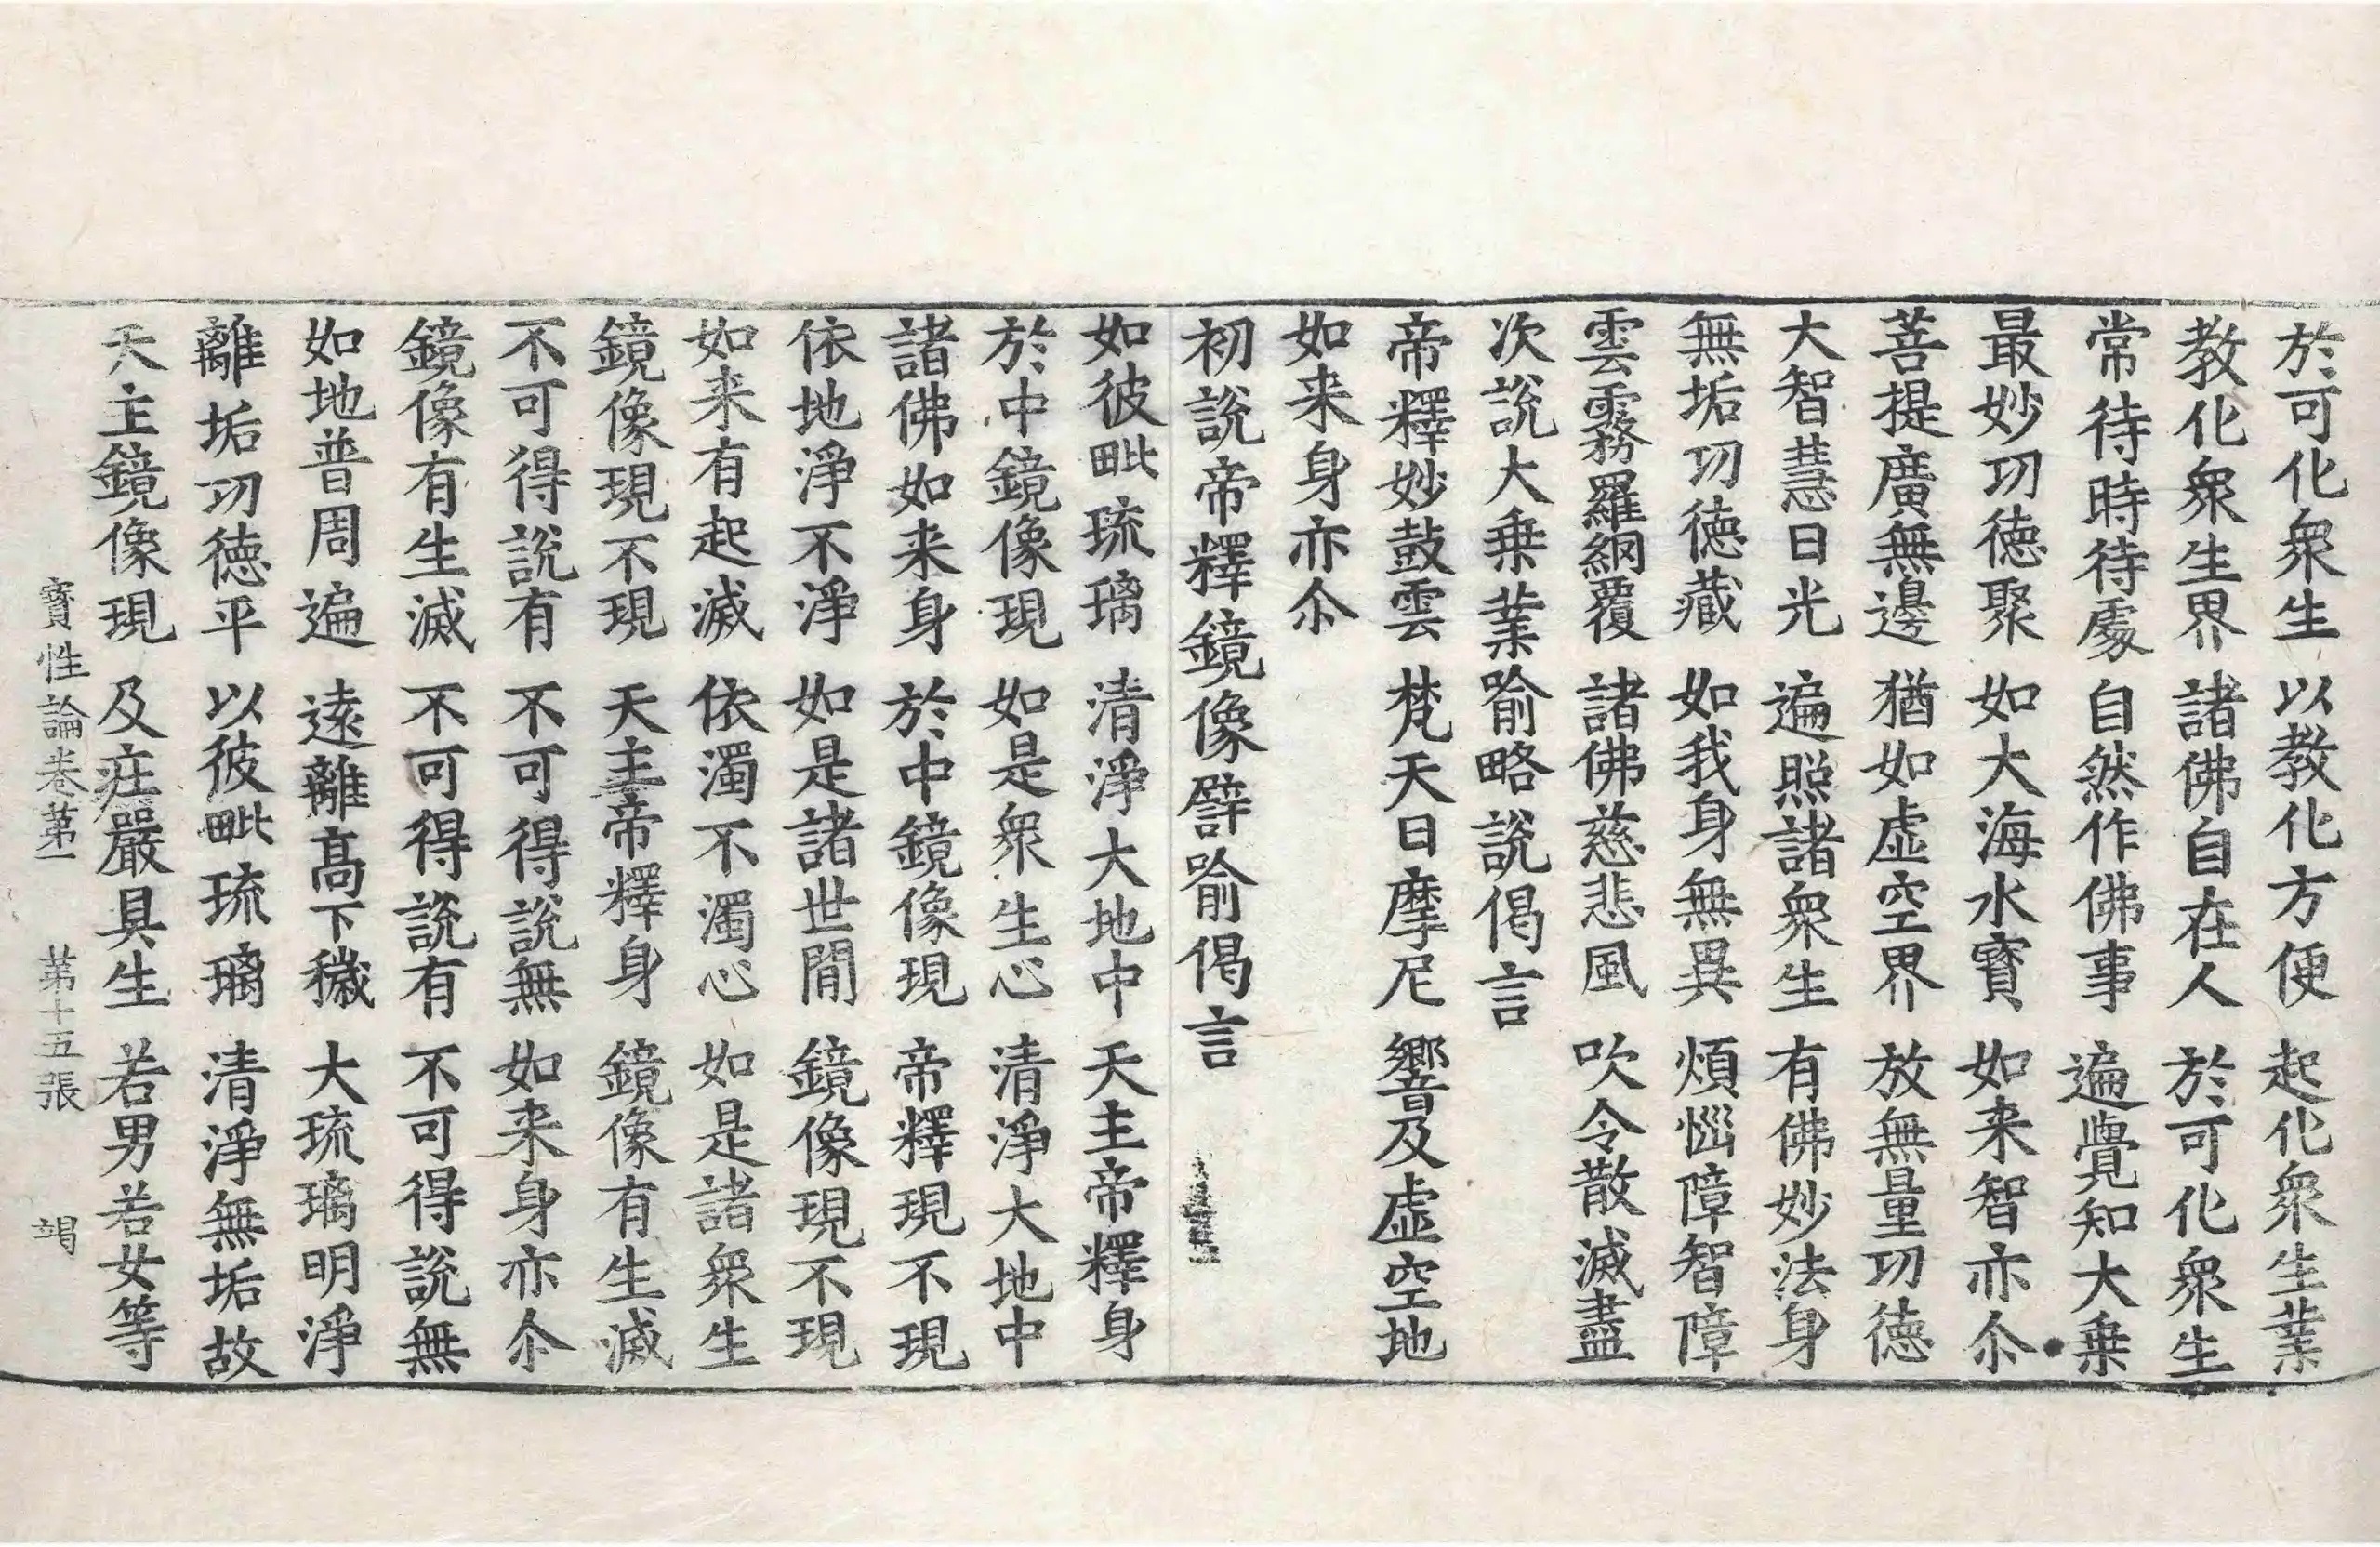 於可化衆生　以教化方便　起化衆生業
教化衆生界　諸佛自在人　於可化衆生
常待時待處　自然作佛事　遍覺知大乗
最妙功徳聚　如大海水寶　如来智亦尒
菩提廣無邊　猶如虛空界　放無量功徳
大智慧日光　遍照諸衆生　有佛妙法身
無垢功徳藏　如我身無異　煩惱障智障
雲霧羅網覆　諸佛慈悲風　吹令散滅盡
次說大乗業喻略說偈言
帝釋妙鼓雲　梵天日摩尼　響及虛空地
如来身亦尒
初說帝釋鏡像譬喻偈言
如彼毗琉璃　清淨大地中　天主帝釋身
於中鏡像現　如是衆生心　清淨大地中
諸佛如来身　於中鏡像現　帝釋現不現
依地淨不淨　如是諸世間　鏡像現不現
如来有起滅　依濁不濁心　如是諸衆生
鏡像現不現　天主帝釋身　鏡像有生滅
不可得說有　不可得說無　如来身亦尒
鏡像有生滅　不可得說有　不可得說無
如地普周遍　遠離髙下穢　大琉璃明淨
離垢功徳平　以彼毗琉璃　清淨無垢故
天主鏡像現　及庄嚴具生　若男若女等
寶性論卷第一　第十五張　竭